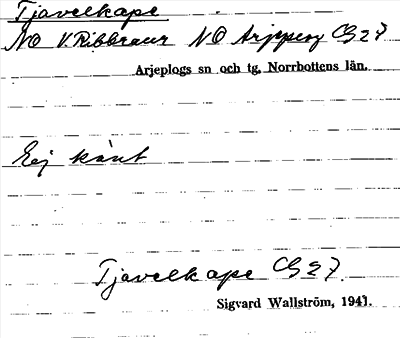 Tjavelkape
NO V. Ribbraur NO Arjeplog CG 27
Arjeplogs sn och tg, Norrbottens län.
Ej känt
Tjavelkape CG 27.
Sigvard Wallström, 1941.